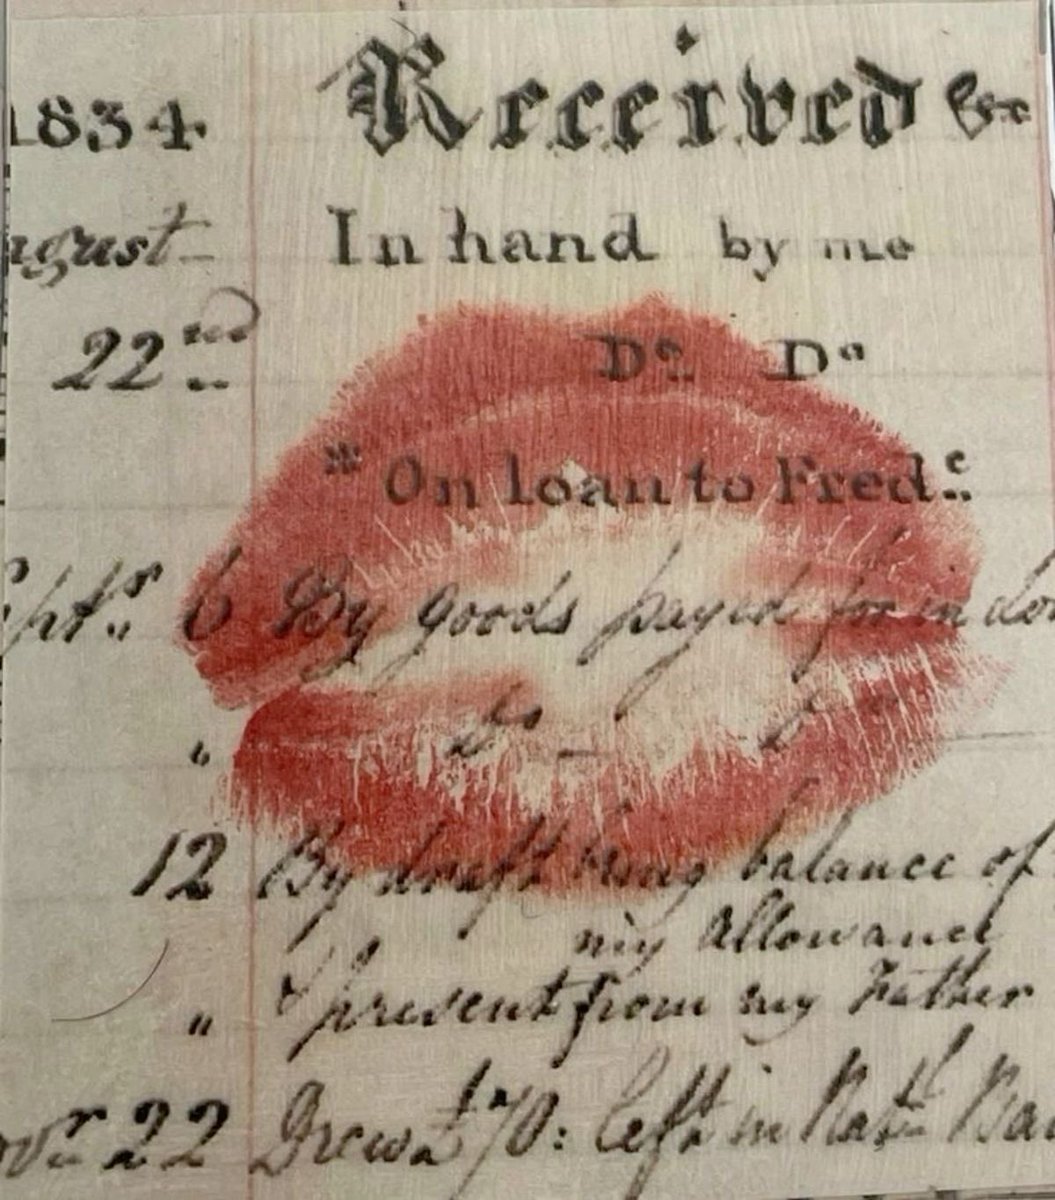 1834. Received &c
ugust In hand by me
22nd Do Do
" On loan to Fred.c
Sept.r 6 By goods payed for in
" Do
12 By draft being balance of
my Allowance
" & present from my Father
ovr 22 Drew £70: left in Natl. Ba